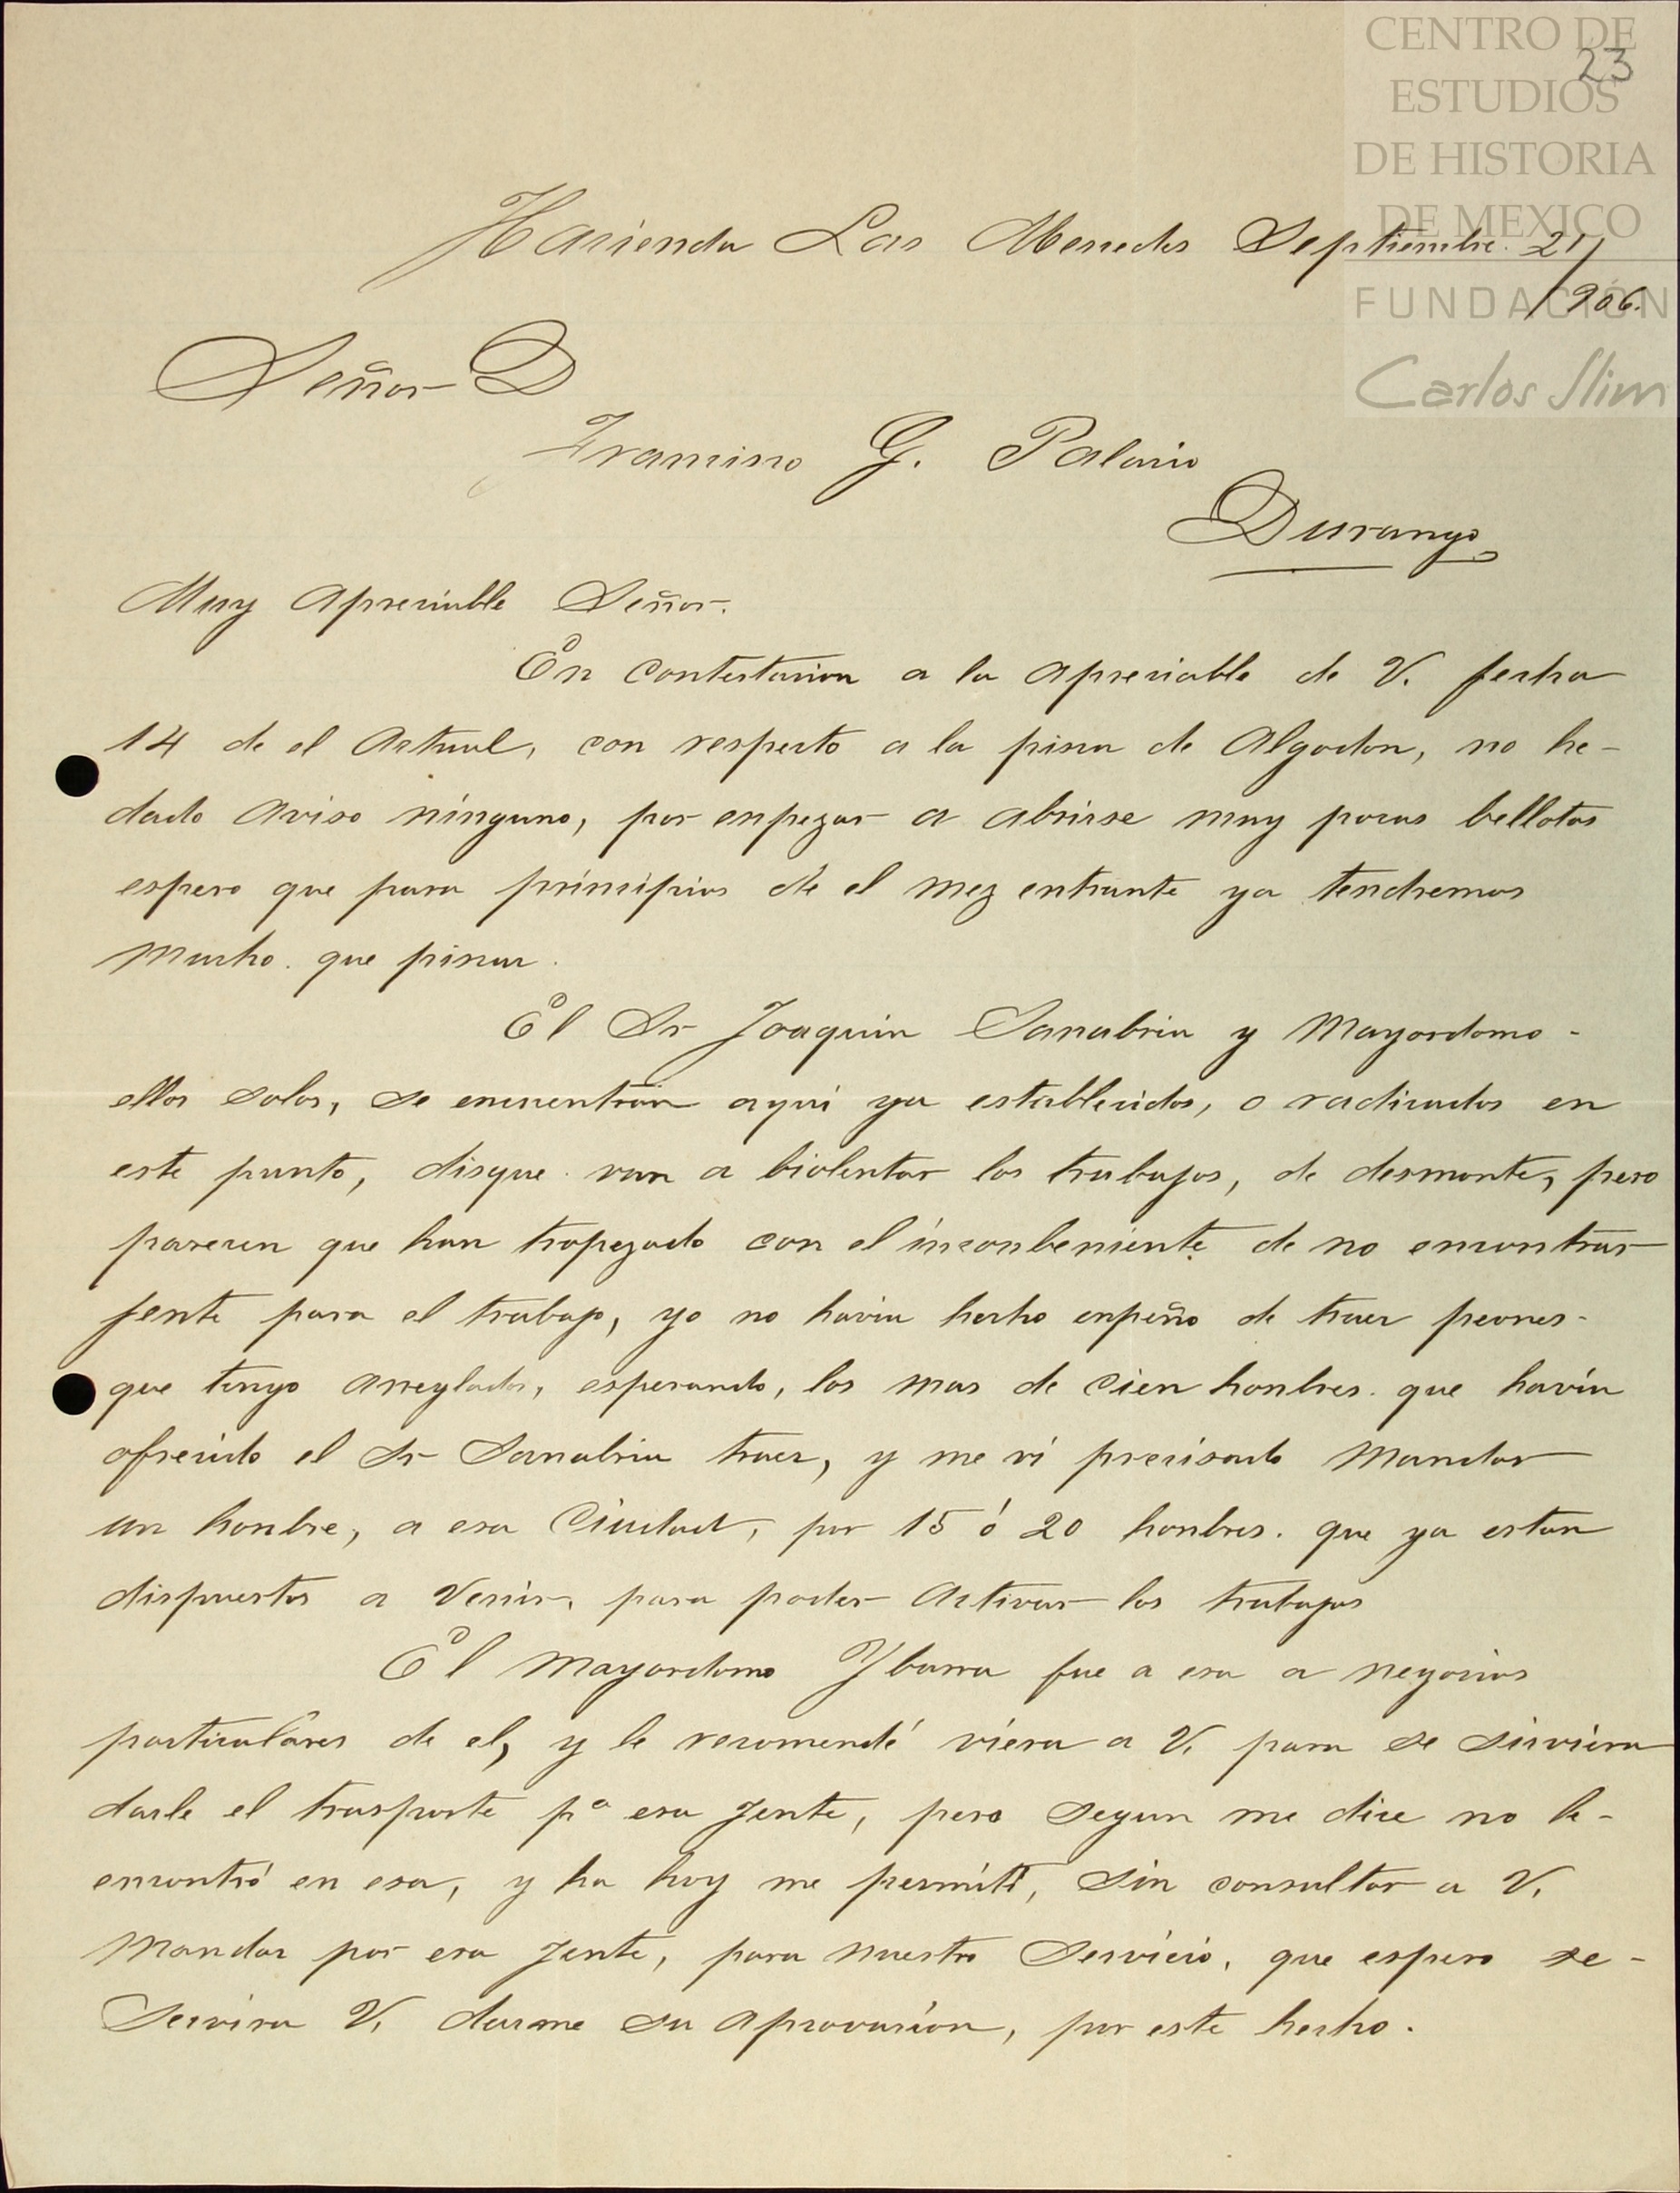 CENTRO DE
23
ESTUDIOS
DE HISTORIA
DE MEXICO
FUNDACIÓN
Carlos Slim
Hacienda Las Mercedes Septiembre 21/
/906.
Señor D
Francisco G. Palacio
Durango
Muy Apreciable Señor.
En contestacion a la apreciable de V. fecha
14 de el Actual, con respecto a la pisca de Algodon, no he-
dado aviso ninguno, por enpezar a abrirse muy pocas bellotas
espero que para principios de el mez entrante ya tendremos
mucho. que piscar.
El Sr Joaquin Sanabria y Mayordomo -
ellos solos, se encuentran aqui ya establecidos, o radicados en
este punto, disque van a biolentar los trabajos, de desmonte, pero
parecen que han tropezado con el inconbeniente de no encontrar
jente para el trabajo, yo no havia hecho enpeño de traer peones-
que tengo arreglados, esperando, los mas de cien honbres. que havia
ofrecido el Sr Sanabria traer, y me vi precisado mandar
un honbre, a esa Ciudad, por 15 ó 20 honbres. que ya estan
dispuestos a Venir, para poder Activar los trabajos
El Mayordomo Ybarra fue a esa a negocios
particulares de el, y le recomendé viera a V. para se sirviera
darle el trasporte pa esa jente, pero segun me dice no le-
encontró en esa, y ha hoy me permití, sin consultar a V.
mandar por esa jente, para nuestro Servicio, que espero se-
Servira V. darme su aprovacion, por este hecho.